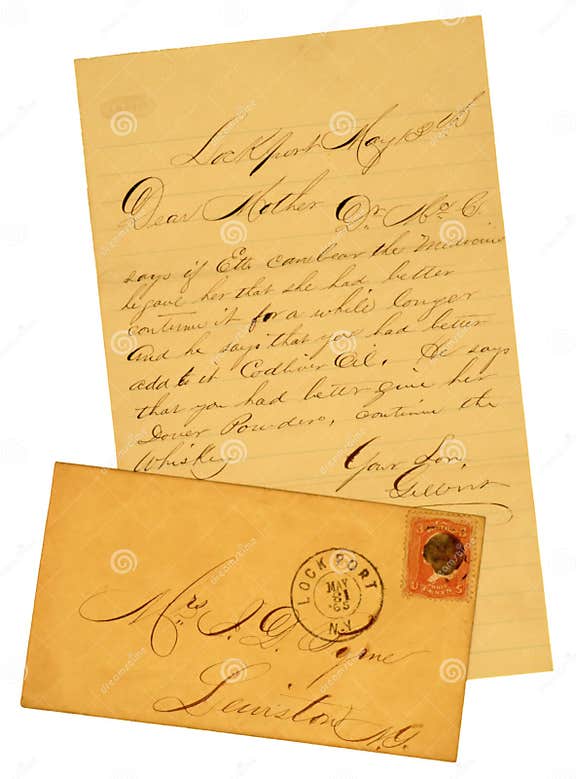 Lockport May 13th
Dear Mother Dr. Mc. C.
says if Etta can bear the Medicine
he gave her that she had better
continue it for a while longer
And he says that you had better
add to it Codliver Oil. He says
that you had better give her
Dover Powders, continue the
Whiskey
Your Son,
Gilbert
LOCKPORT
MAY
31
65
N.Y.
Mrs. I. D. Payne
Lewiston
N.Y.
U 3
S 3
dreamstime